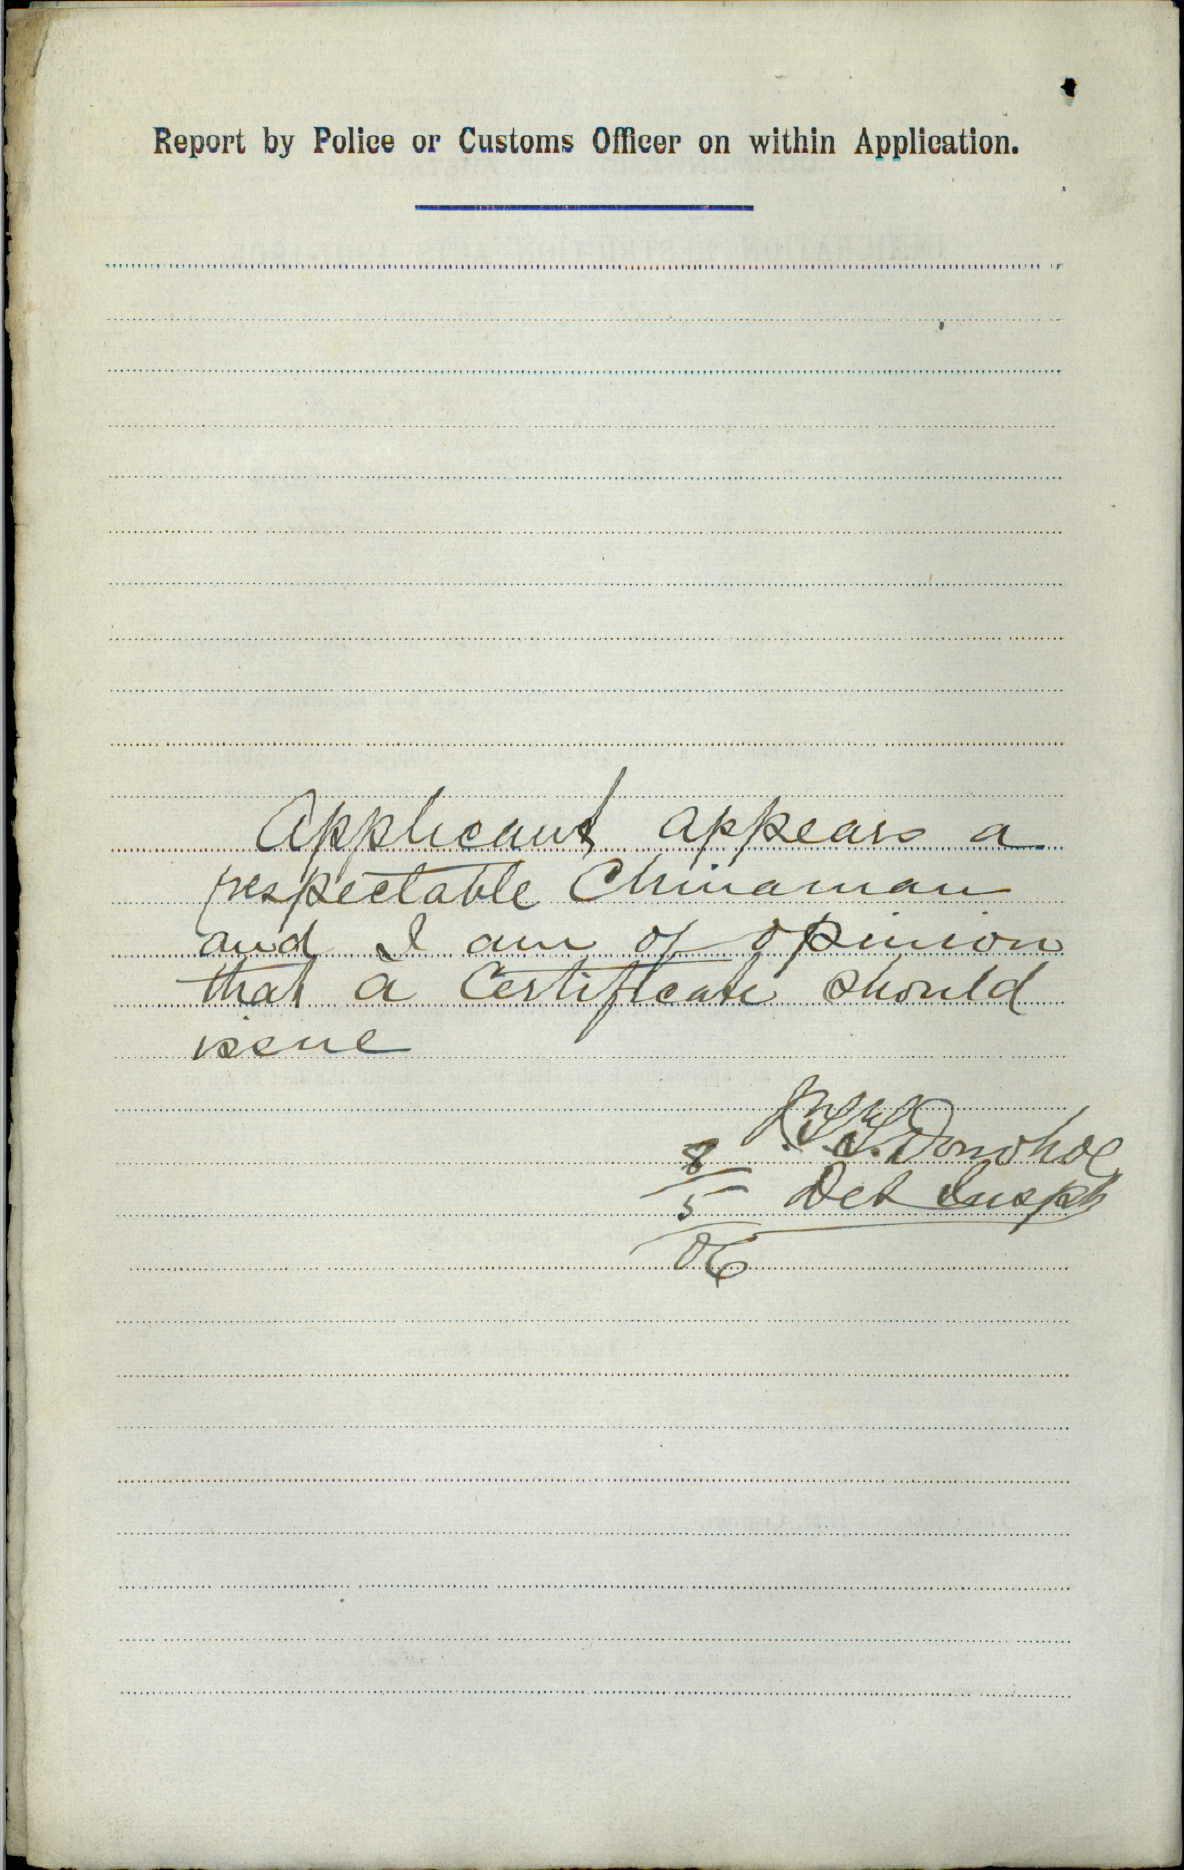 Report by Police or Customs Officer on within Application.
Applicant appears a
respectable Chinaman
and I am of opinion
that a Certificate should
issue
Donohoe
Det Inspr
8/5/06